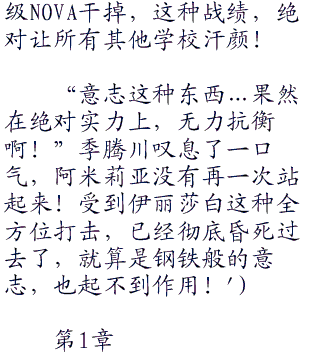 级NOVA干掉，这种战绩，绝
对让所有其他学校汗颜！
“意志这种东西…果然
在绝对实力上，无力抗衡
啊！”季腾川叹息了一口
气，阿米莉亚没有再一次站
起来！受到伊丽莎白这种全
方位打击，已经彻底昏死过
去了，就算是钢铁般的意
志，也起不到作用！′)
第1章